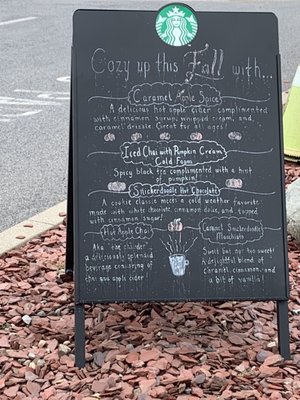 Cozy up this Fall with...
Caramel Apple Spice
A delicious hot apple cider complimented
with cinnamon syrup, whipped cream, and
caramel drizzle. Great for all ages!
Iced Chai with Pumpkin Cream
Cold Foam
Spicy black tea complimented with a hint
of pumpkin!
Snickerdoodle Hot Chocolate
A cookie classic meets a cold weather favorite
made with white chocolate, cinnamon dolce, and topped
with cinnamon sugar.
Hot Apple Chai
AKA "the chaider"
a deliciously splendid
beverage consisting of
chai and apple cider!
Caramel Snickerdoodle
Macchiato
Sweet but not too sweet!
A delightful blend of
caramel, cinnamon, and
a bit of vanilla!